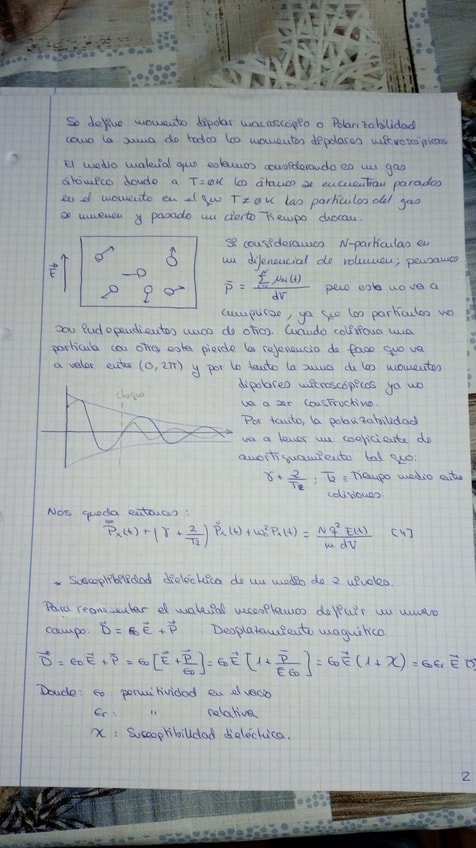 Se define momento dipolar macroscópio o Polarizabilidad
como la suma de todos los momentos dipolares microscópicos
El medio material que estamos considerando es un gas
atómico donde a T=0K los átomos se encuentran parados
en el momento en el que T≠0K las partículas del gas
se mueven y pasado un cierto tiempo chocan.
E⃗
Si consideramos N-partículas en
un diferencial de volumen; pensamos
P⃗ = Σ μₙ(t) / dV pero esto no va a
cumplirse, ya que las partículas no
son independientes unos de otros. Cuando colisiona una
partícula con otra esta pierde la referencia de fase que va
a valer entre (0, 2π) y por lo tanto la suma de los momentos
Choque
dipolares microscópicos ya no
va a ser constructivo.
Por tanto, la polarizabilidad
va a tener un coeficiente de
amortiguamiento tal que:
γ + 2/T₂ ; T₂ ≡ Tiempo medio entre
colisiones
Nos queda entonces:
P̈ₓ(t) + (γ + 2/T₂) Ṗₓ(t) + ω₀² Pₓ(t) = N q² E(t) / m dV [4]
* Susceptibilidad dieléctrica de un medio de 2 niveles.
Para representar el material necesitamos definir un nuevo
campo. D⃗ = ε₀E⃗ + P⃗ . Desplazamiento magnético
D⃗ = ε₀E⃗ + P⃗ = ε₀[E⃗ + P⃗/ε₀] = ε₀E⃗ [1 + P⃗/E⃗ε₀] = ε₀E⃗ (1 + χ) = ε₀εᵣ E⃗
Donde: ε₀: permitividad en el vacío
εᵣ: " relativa
χ: Susceptibilidad dieléctrica.
2